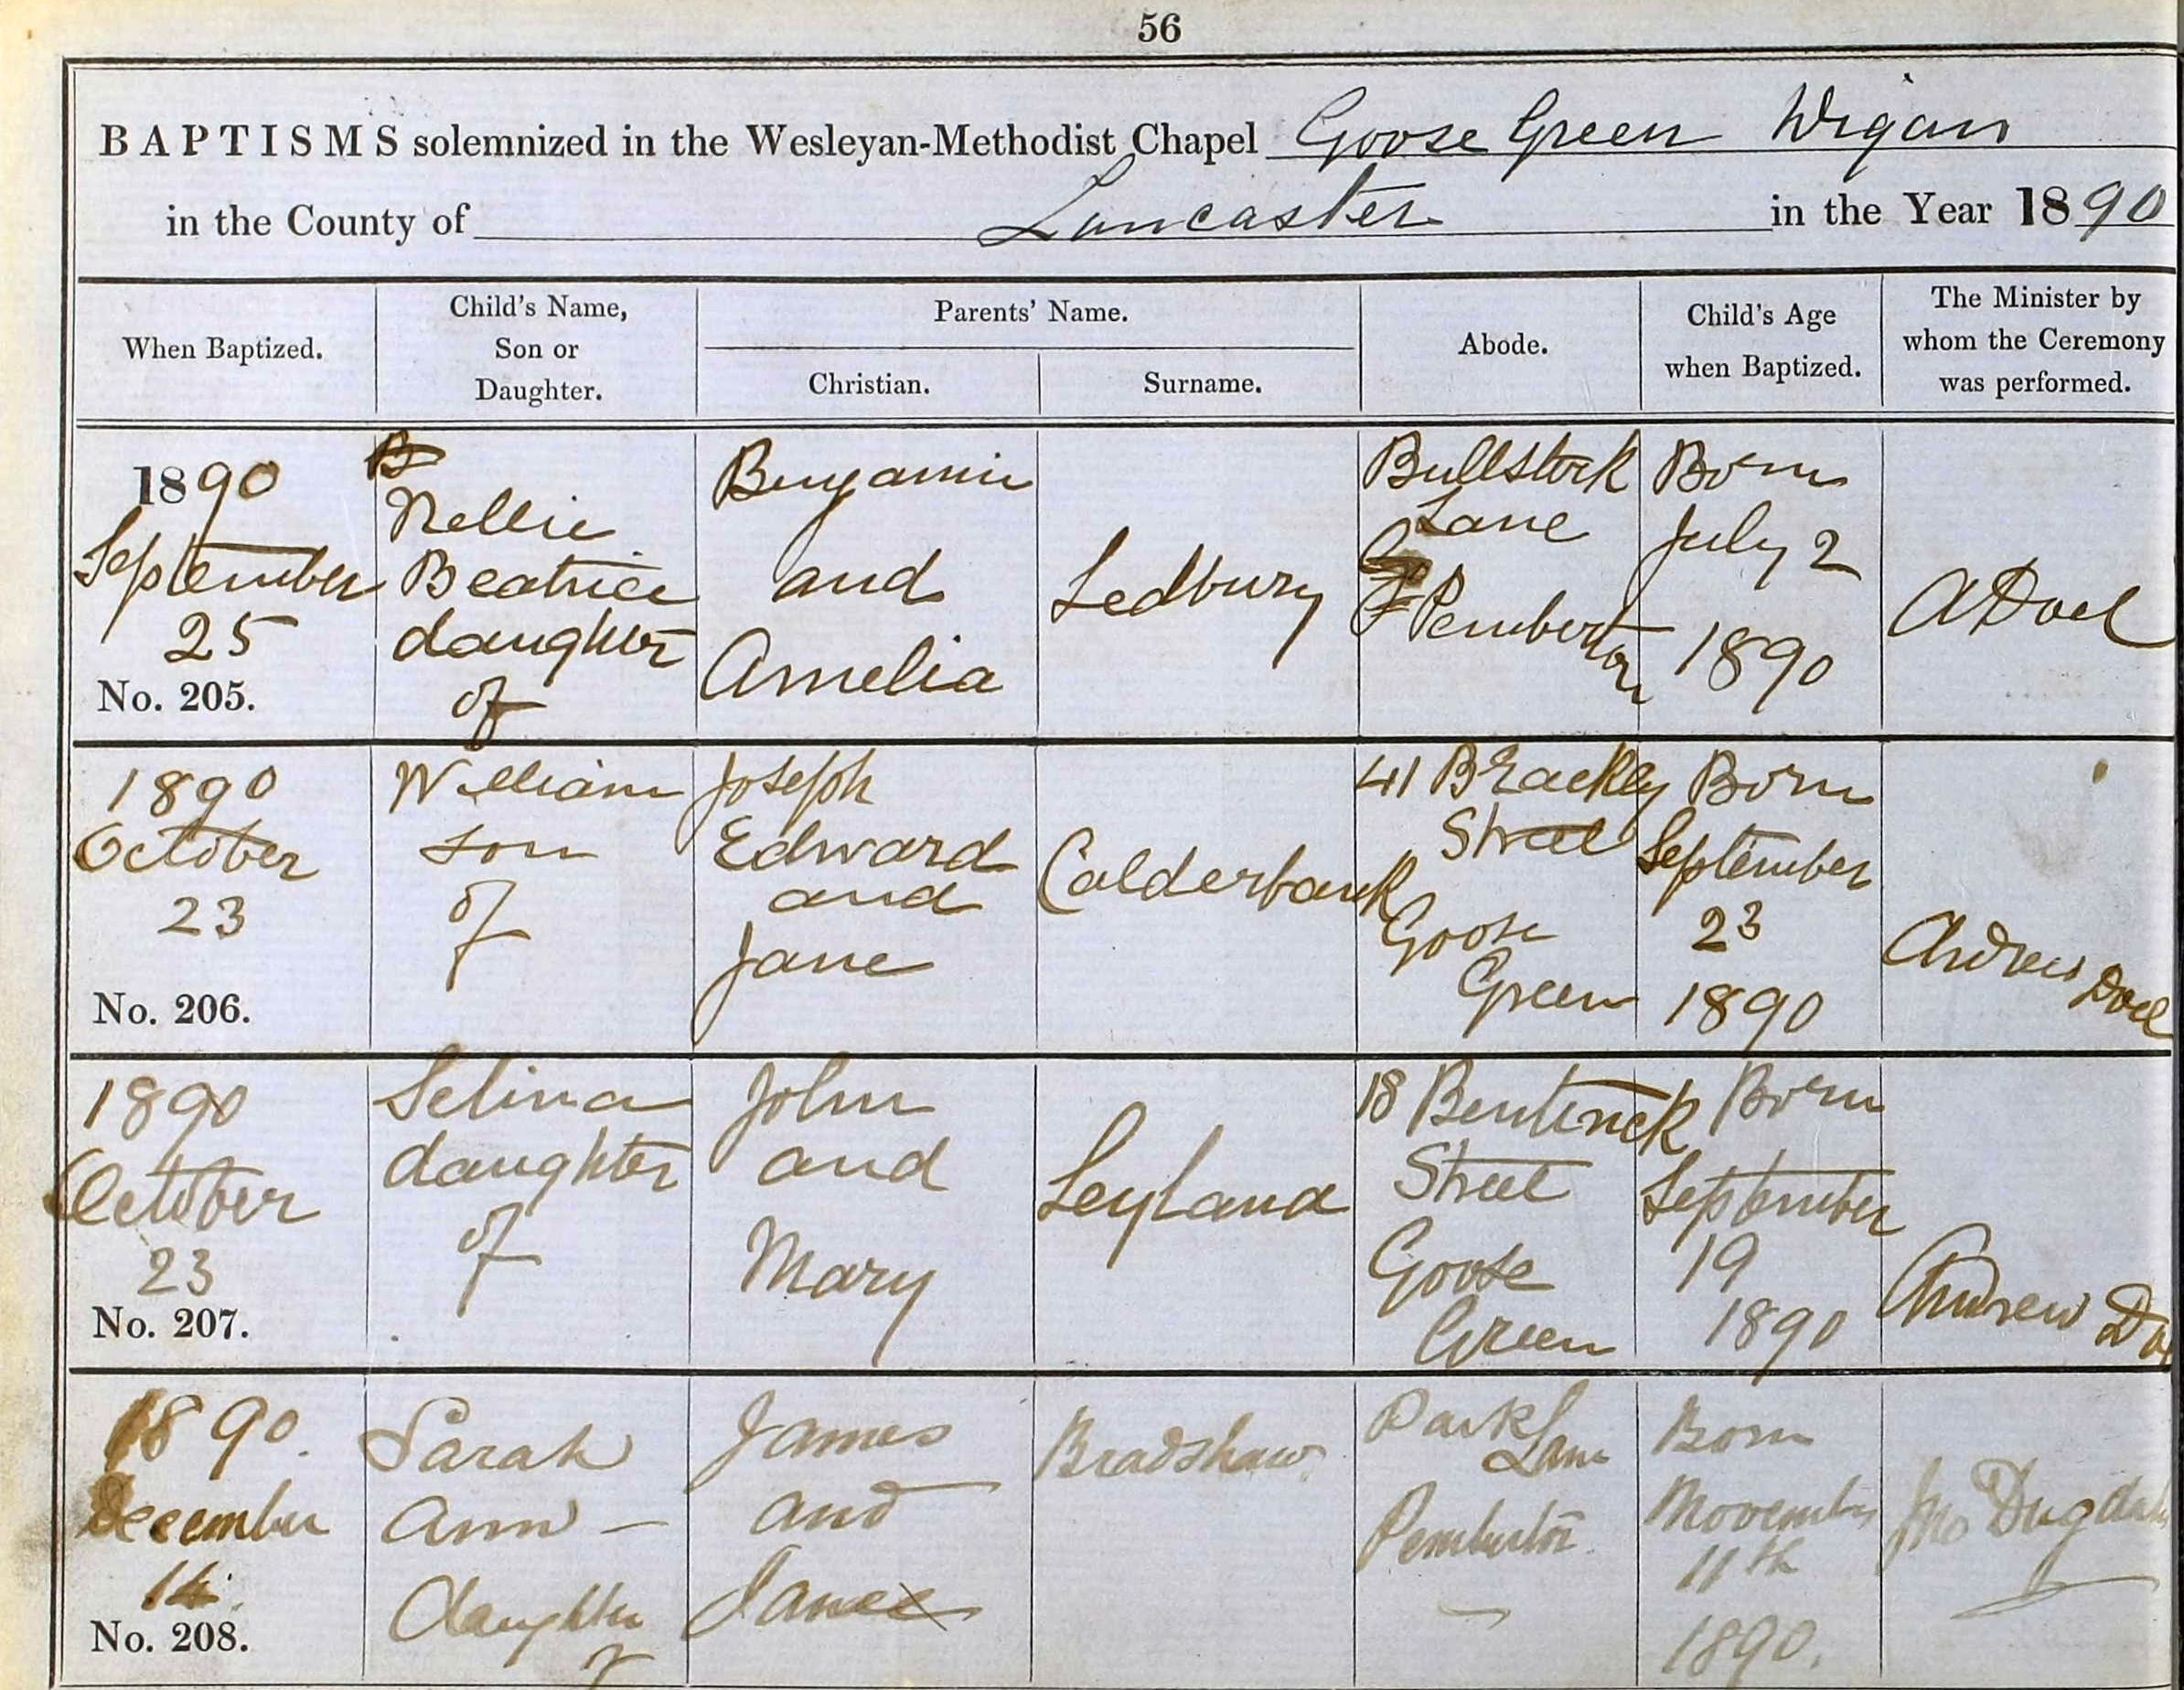 56
BAPTISMS solemnized in the Wesleyan-Methodist Chapel Goose Green Wigan
in the County of Lancaster in the Year 1890
When Baptized.
Child's Name,
Son or
Daughter.
Parents' Name.
Christian.
Surname.
Abode.
Child's Age
when Baptized.
The Minister by
whom the Ceremony
was performed.
1890
September
25
No. 205.
Nellie
Beatrice
daughter
of
Benjamin
and
Amelia
Ledbury
Lane
Pemberton
Born
July 2
1890
A Doel
1890
October
23
No. 206.
William
son
of
Joseph
Edward
and
Jane
Calderbank
41 Brackley
Street
Goose
Green
Born
September
23
1890
Andrew Doel
1890
October
23
No. 207.
Selina
daughter
of
John
and
Mary
Leyland
18 Bentinck
Street
Goose
Green
Born
September
19
1890
Andrew Do
1890.
December
14.
No. 208.
Sarah
Ann –
daughter
of
James
and
Jane
Bradshaw
Park Lane
Pemberton
Born
November
11th
1890.
Jno Dugdale